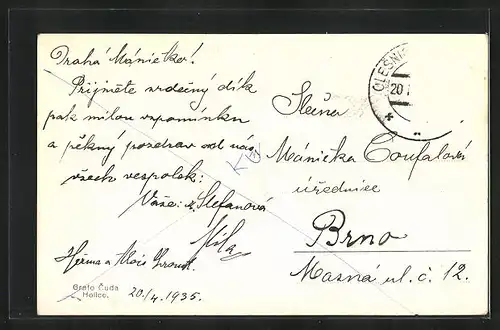 Drahá Mánietko!
Přijměte srdečný dík
pak milou vzpomínku
a pěkný pozdrav od nás
všech vespolek:
Vaše: Štefanová
Míla
Heřma a Alois
20./4. 1935.
Grafo Čuda
Holice.
OLEŠNI
20
Slečna
Mánietka Coufalová
úřednice
Brno
Masná ul. č. 12.